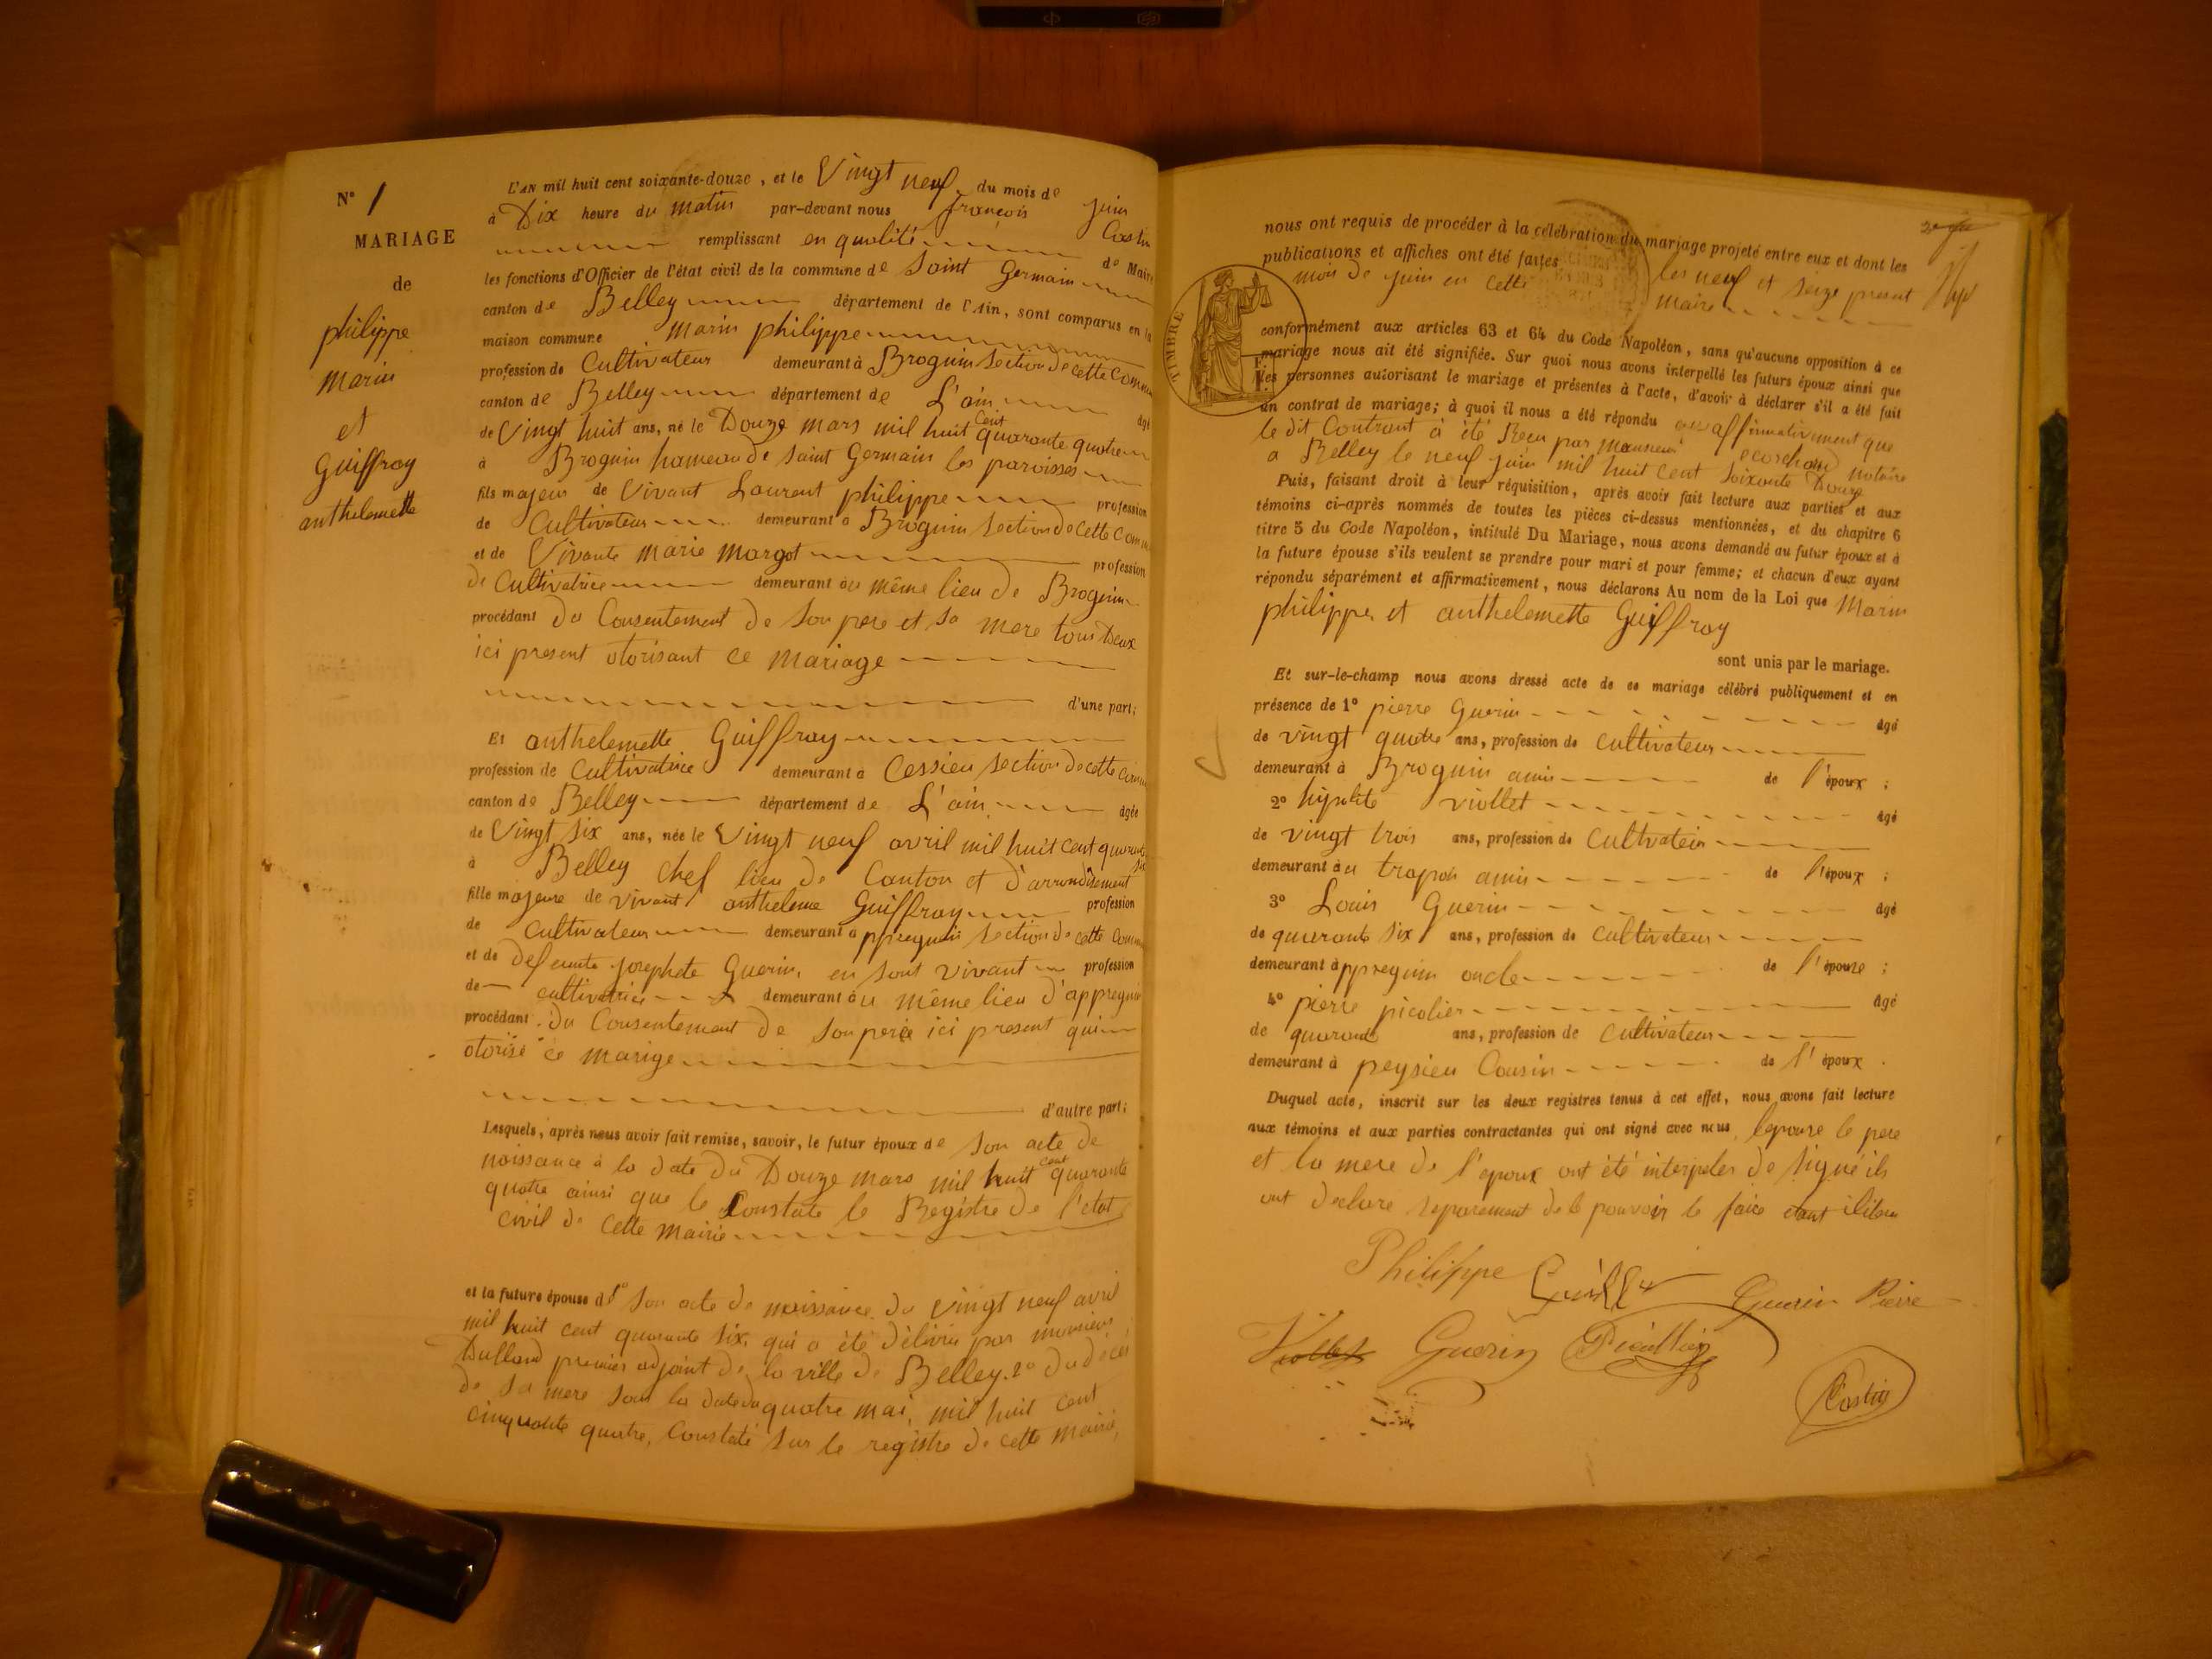 N° 1
MARIAGE
de
philippe
marin
et
Guiffray
anthelemette
L'AN mil huit cent soixante-douze, et le Vingt neuf du mois de juin
à Dix heure du matin par-devant nous françois Costin
remplissant en qualité de Maire
les fonctions d'Officier de l'état civil de la commune de Saint Germain
canton de Belley département de l'Ain, sont comparus en la
maison commune marin philippe
profession de Cultivateur demeurant à Brognin section de cette commune
canton de Belley département de L'ain âgé
de Vingt huit ans, né le Douze mars mil huit cent quarante quatre
à Brognin hameau de Saint Germain les paroisses
fils majeur de Vivant Laurent philippe profession
de Cultivateur demeurant à Brognin section de cette commune
et de Vivante marie margot profession
de Cultivatrice demeurant au même lieu de Brognin
procédant du Consentement de son pere et sa mere tous Deux
ici present otorisant ce mariage
d'une part;
Et anthelemette Guiffray
profession de Cultivatrice demeurant à Cessieu section de cette commune
canton de Belley département de L'ain âgée
de Vingt six ans, née le Vingt neuf avril mil huit cent quarante six
à Belley chef lieu de Canton et d'arrondisement
fille majeure de vivant anthelme Guiffray profession
de Cultivateur demeurant à ppregnin section de cette commune
et de defeunte josephete Guerin, en sont vivant profession
de cultivatrice demeurant au même lieu d'appregnin
procédant du Consentement de son pere ici present qui
otorise ce marige
d'autre part;
Lesquels, après nous avoir fait remise, savoir, le futur époux de son acte de
naissance à la date du Douze mars mil huit cent quarante
quatre ainsi que le Constate le Registre de l'état
civil de cette mairie
et la future épouse d 1° son acte de naissance du vingt neuf avril
mil huit cent quarante six, qui a été délivré par monsieur
Dulland premier adjoint de la ville de Belley. 2° du décès
de sa mere sous la date du quatre mai, mil huit cent
cinquante quatre, Constaté sur le registre de cette mairie,
nous ont requis de procéder à la célébration du mariage projeté entre eux et dont les
publications et affiches ont été faites les neuf et seize present
mois de juin en cette maire
TIMBRE
conformément aux articles 63 et 64 du Code Napoléon, sans qu'aucune opposition à ce
mariage nous ait été signifiée. Sur quoi nous avons interpellé les futurs époux ainsi que
les personnes autorisant le mariage et présentes à l'acte, d'avoir à déclarer s'il a été fait
un contrat de mariage; à quoi il nous a été répondu affirmativement que
le dit Contrant à été Reçu par monsieur notaire
a Belley le neuf juin mil huit cent soixante Douze
Puis, faisant droit à leur réquisition, après avoir fait lecture aux parties et aux
témoins ci-après nommés de toutes les pièces ci-dessus mentionnées, et du chapitre 6
titre 5 du Code Napoléon, intitulé Du Mariage, nous avons demandé au futur époux et à
la future épouse s'ils veulent se prendre pour mari et pour femme; et chacun d'eux ayant
répondu séparément et affirmativement, nous déclarons Au nom de la Loi que Marin
philippe et anthelemette Guiffray
sont unis par le mariage.
Et sur-le-champ nous avons dressé acte de ce mariage célébré publiquement et en
présence de 1° pierre Guerin âgé
de vingt quatre ans, profession de cultivateur
demeurant à Brognin amis de l'époux ;
2° hipolite viollet âgé
de vingt trois ans, profession de Cultivateur
demeurant au trapon amis de l'époux ;
3° Louis Guerin âgé
de quarante six ans, profession de cultivateur
demeurant à ppregnin oncle de l'épouse ;
4° pierre picolier âgé
de quarante ans, profession de Cultivateur
demeurant à peysieu Cousin de l'époux .
Duquel acte, inscrit sur les deux registres tenus à cet effet, nous avons fait lecture
aux témoins et aux parties contractantes qui ont signé avec nous, lepouse le pere
et la mere de l'epoux ont été interpeles de signé ils
ont declare separement de le pouvoir le faire
Philippe Guerin Pierre
Viollet Guerin
Costin